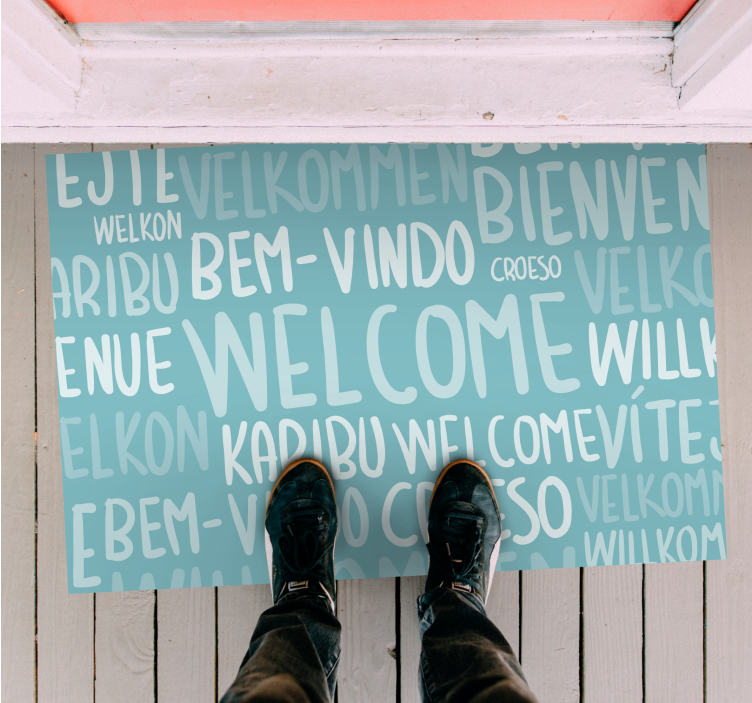 EJTE VELKOMMEN BEM-VI
WELKON BIENVEN
ARIBU BEM-VINDO CROESO VELKO
ENUE WELCOME WILLK
ELKON KARIBU WELCOME VÍTEJ
E BEM-V O CROESO VELKOMM
WILLKOM